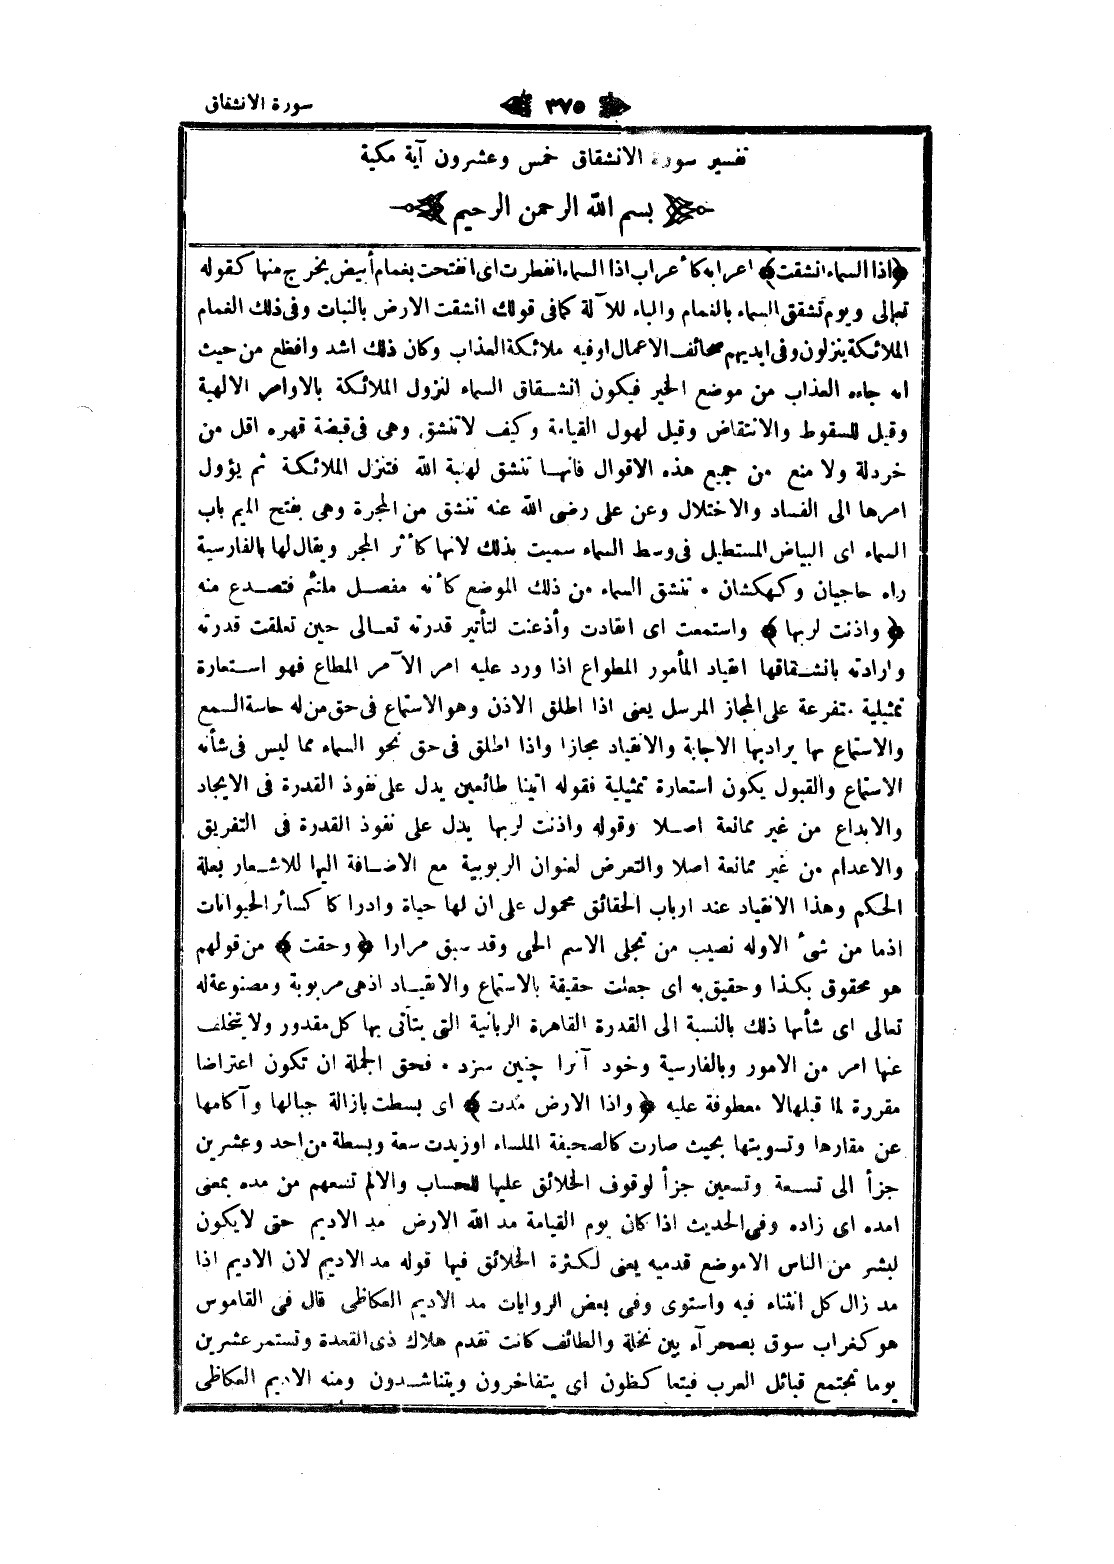 سورة الانشقاق ٣٧٥
تفسير سورة الانشقاق خمس وعشرون آية مكية
بسم الله الرحمن الرحيم
﴿اذا السماء انشقت﴾ اعرابه كأعراب اذا السماء انفطرت اى انفتحت بغمام أبيض يخرج منها كقوله
تعالى ويوم تشقق السماء بالغمام والباء للآلة كما فى قولك انشقت الارض بالنبات وفى ذلك الغمام
الملائكة ينزلون وفى ايديهم صحائف الاعمال اوفيه ملائكة العذاب وكان ذلك اشد وافظع من حيث
انه جاءه العذاب من موضع الخير فيكون انشقاق السماء لنزول الملائكة بالاوامر الالهية
وقيل للسقوط والانتقاض وقيل لهول القيامة وكيف لاتنشق وهى فى قبضة قهره اقل من
خردلة ولا منع من جميع هذه الاقوال فانها تنشق لهبة الله فتنزل الملائكة ثم يؤول
امرها الى الفساد والاختلال وعن على رضى الله عنه تنشق من المجرة وهى بفتح الميم باب
السماء اى البياض المستطيل فى وسط السماء سميت بذلك لانها كأثر المجر ويقال لها بالفارسية
راه حاجيان وكهكشان . تنشق السماء من ذلك الموضع كأنه مفصل ملتئم فتصدع منه
﴿واذنت لربها﴾ واستمعت اى انقادت وأذعنت لتأثير قدرته تعالى حين تعلقت قدرته
وارادته بانشقاقها انقياد المأمور المطواع اذا ورد عليه امر الآمر المطاع فهو استعارة
تمثيلية متفرعة على المجاز المرسل يعنى اذا اطلق الاذن وهو الاستماع فى حق من له حاسة السمع
والاستماع بها يراد بها الاجابة والانقياد مجازا واذا اطلق فى حق نحو السماء مما ليس فى شأنه
الاستماع والقبول يكون استعارة تمثيلية فقوله اتينا طائعين يدل على نفوذ القدرة فى الايجاد
والابداع من غير ممانعة اصلا وقوله واذنت لربها يدل على نفوذ القدرة فى التفريق
والاعدام من غير ممانعة اصلا والتعرض لعنوان الربوبية مع الاضافة اليها للاشعار بعلة
الحكم وهذا الانقياد عند ارباب الحقائق محمول على ان لها حياة وادراكا كسائر الحيوانات
اذما من شئ الاوله نصيب من تجلى الاسم الحى وقد سبق مرارا ﴿وحقت﴾ من قولهم
هو محقوق بكذا وحقيق به اى جعلت حقيقة بالاستماع والانقياد اذهى مربوبة ومصنوعة له
تعالى اى شأنها ذلك بالنسبة الى القدرة القاهرة الربانية التى يتأتى بها كل مقدور ولا يتخلف
عنها امر من الامور وبالفارسية وخود آنرا چنين سزد . فحق الجملة ان تكون اعتراضا
مقررة لما قبلها لا معطوفة عليه ﴿واذا الارض مدت﴾ اى بسطت بازالة جبالها وآكامها
عن مقارها وتسويتها بحيث صارت كالصحيفة الملساء اوزيدت سعة وبسطة من احد وعشرين
جزأ الى تسعة وتسعين جزأ لوقوف الخلائق عليها للحساب والالم تسعهم من مده بمعنى
امده اى زاده وفى الحديث اذا كان يوم القيامة مد الله الارض مد الاديم حتى لايكون
لبشر من الناس الاموضع قدميه يعنى لكثرة الخلائق فيها قوله مد الاديم لان الاديم اذا
مد زال كل انثناء فيه واستوى وفى بعض الروايات مد الاديم العكاظى قال فى القاموس
هو كغراب سوق بصحرآء بين نخلة والطائف كانت تقدم هلاك ذى القعدة وتستمر عشرين
يوما تجتمع قبائل العرب فيتعاكظون اى يتفاخرون ويتناشدون ومنه الاديم العكاظى